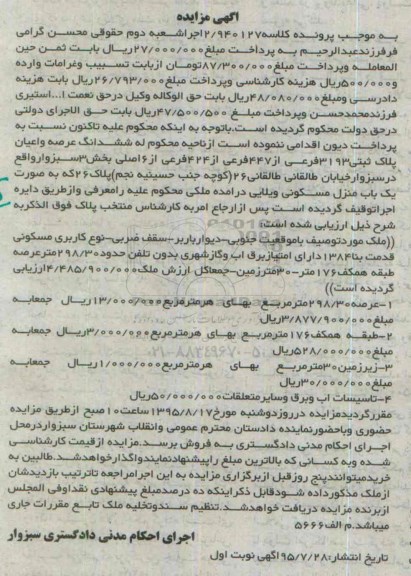 آگهی مزایده
به موجب پرونده کلاسه۲/۹۴۰۱۲۷اجراشعبه دوم حقوقی محسن گرامی
فرفرزندعبدالرحیم به پرداخت مبلغ۲۷/۰۰۰/۰۰۰ریال بابت ثمن حین
المعامله وپرداخت مبلغ۸۷/۳۰۰/۰۰۰تومان ازبابت تسبیب وغرامات وارده
و۵۰۰/۰۰۰ریال هزینه کارشناسی وپرداخت مبلغ۲۶/۷۹۳/۰۰۰ریال بابت هزینه
دادرسی ومبلغ۴۸/۰۸۰/۰۰۰ریال بابت حق الوکاله وکیل درحق نعمت ا...استیری
فرزندمحمدحسن وپرداخت مبلغ ۴۷/۵۰۰/۵۰۰ریال بابت حق الاجرای دولتی
درحق دولت محکوم گردیده است.باتوجه به اینکه محکوم علیه تاکنون نسبت به
پرداخت دیون اقدامی ننموده است ازناحیه محکوم له ششدانگ عرصه واعیان
پلاک ثبتی۳۱۹۳فرعی از۴۴۷فرعی از۴۲۴فرعی از۶اصلی بخش۳سبزوارواقع
درسبزوارخیابان طالقانی طالقانی۲۶(کوچه جنب حسینیه نجم)پلاک۲۶که به صورت
یک باب منزل مسکونی ویلایی درامده ملکی محکوم علیه رامعرفی وازطریق دایره
اجراتوقیف گردیده است پس ازارجاع امربه کارشناس منتخب پلاک فوق الذکربه
شرح ذیل ارزیابی شده است
((ملک موردتوصیف باموقعیت جنوبی-دیوارباربر-سقف ضربی-نوع کاربری مسکونی
قدمت بنا۱۳۸۴دارای امتیازبرق اب وگازشهری بدون تلفن حدود۲۹۸/۳۰مترعرصه
طبقه همکف۱۷۶متر-۳۰مترزمین-جمعاکل ارزش ملک۴/۴۸۵/۹۰۰/۰۰۰ارزیابی
گردیده است))
۱-عرصه۲۹۸/۳۰مترمربع بهای هرمترمربع۱۳/۰۰۰/۰۰۰ریال جمعابه
مبلغ۳/۸۷۷/۹۰۰/۰۰۰ریال
۲-طبقه همکف۱۷۶مترمربع بهای هرمترمربع۳/۰۰۰/۰۰۰ریال جمعابه
مبلغ۵۲۸/۰۰۰/۰۰۰ریال
۳-زیرزمین۳۰مترمربع بهای هرمترمربع۱/۰۰۰/۰۰۰ریال جمعابه
مبلغ۳۰/۰۰۰/۰۰۰ریال
۴-تاسیسات اب وبرق وسایرمتعلقات۵۰/۰۰۰/۰۰۰ریال
مقررگردیدمزایده درروزدوشنبه مورخ۱۳۹۵/۸/۱۷ساعت۱۰صبح ازطریق مزایده
حضوری وباحضورنماینده دادستان محترم عمومی وانقلاب شهرستان سبزواردرمحل
اجرای احکام مدنی دادگستری به فروش برسد.مزایده ازقیمت کارشناسی
شده وبه کسانی که بالاترین مبلغ راپیشنهادنمایندواگذارخواهدشد.طالبین به
خریدمیتوانندپنج روزقبل ازبرگزاری مزایده به این اجرامراجعه تاترتیب بازدیدشان
ازملک مذکورداده شودقابل ذکراینکه ده درصدمبلغ پیشنهادی نقداوفی المجلس
ازبرنده مزایده دریافت خواهدشد.تنظیم سندوتخلیه ملک تابع مقررات جاری
میباشد.م الف۵۶۶۶
اجرای احکام مدنی دادگستری سبزوار
تاریخ انتشار:۹۵/۷/۲۸آگهی نوبت اول